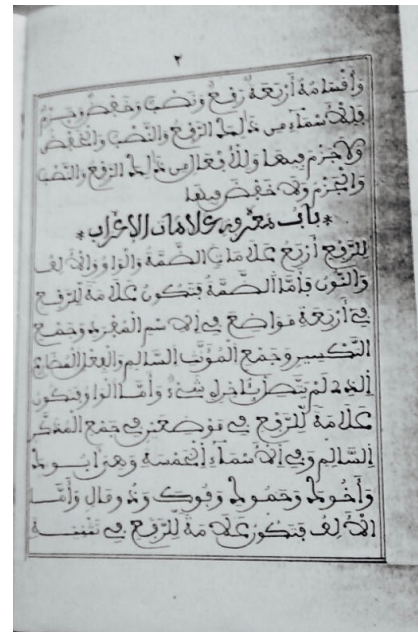 ٢
وَأَقْسَامُهُ أَرْبَعَةٌ رَفْعٌ وَنَصْبٌ وَخَفْضٌ وَجَزْمٌ
فَلِلْأَسْمَاءِ مِن ذَٰلِكَ الرَّفْعُ وَالنَّصْبُ وَالْخَفْضُ
وَلَا جَزْمَ فِيهَا وَلِلْأَفْعَالِ مِن ذَٰلِكَ الرَّفْعُ وَالنَّصْبُ
وَالْجَزْمُ وَلَا خَفْضَ فِيهَا
*بَاب مَعْرِفَة عَلَامَات الْإِعْرَاب*
لِلرَّفْعِ أَرْبَعُ عَلَامَاتٍ الضَّمَّةُ وَالْوَاوُ وَالْأَلِفُ
وَالنُّونُ فَأَمَّا الضَّمَّةُ فَتَكُونُ عَلَامَةً لِلرَّفْعِ
فِي أَرْبَعَةِ مَوَاضِعَ فِي الِاسْمِ الْمُفْرَدِ وَجَمْعِ
التَّكْسِيرِ وَجَمْعِ الْمُؤَنَّثِ السَّالِمِ وَالْفِعْلِ الْمُضَارِعِ
الَّذِي لَمْ يَتَّصِلْ بِآخِرِهِ شَيْءٌ وَأَمَّا الْوَاوُ فَتَكُونُ
عَلَامَةً لِّلرَّفْعِ فِي مَوْضِعَيْنِ فِي جَمْعِ الْمُذَكَّرِ
السَّالِمِ وَفِي الْأَسْمَاءِ الْخَمْسَةِ وَهِيَ أَبُوكَ
وَأَخُوكَ وَحَمُوكَ وَفُوكَ وَذُو مَالٍ وَأَمَّا
الْأَلِفُ فَتَكُونُ عَلَامَةً لِّلرَّفْعِ فِي تَثْنِيَةِ